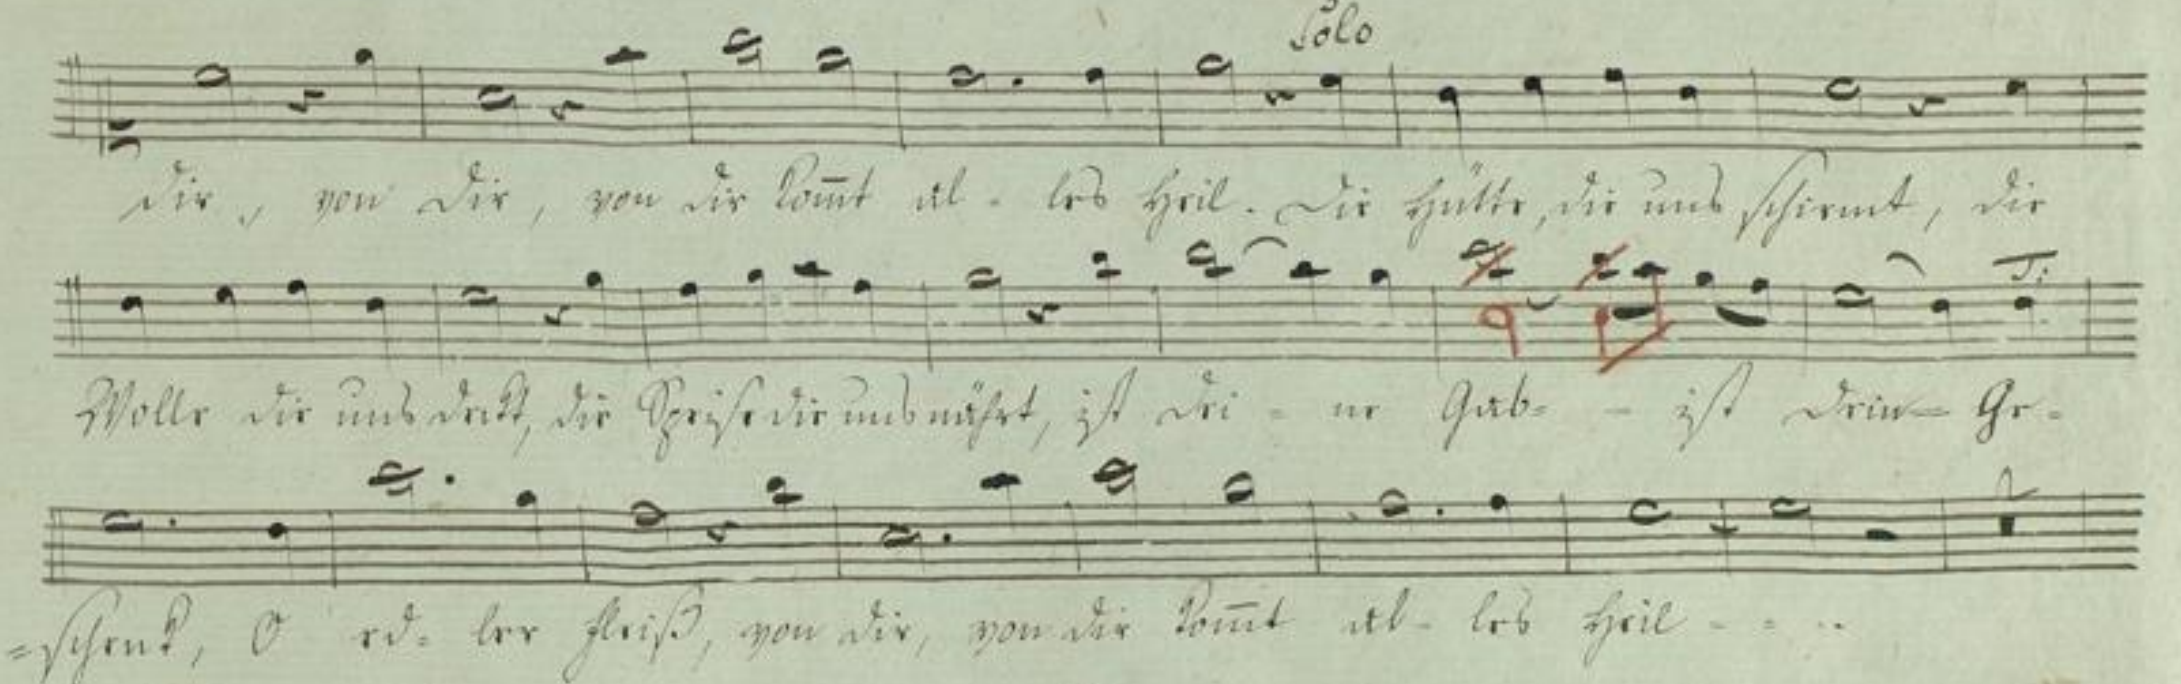 Solo
dir, von dir, von dir kom̅t al- les Heil. Die Hütte, die uns schirmt, die
T:
Wolle die uns dekt, die Speise die uns nährt, ist dei- ne Gab- - ist dein Ge-
=schenk, O ed- ler Fleiß, von dir, von dir kom̅t al- les Heil - - -